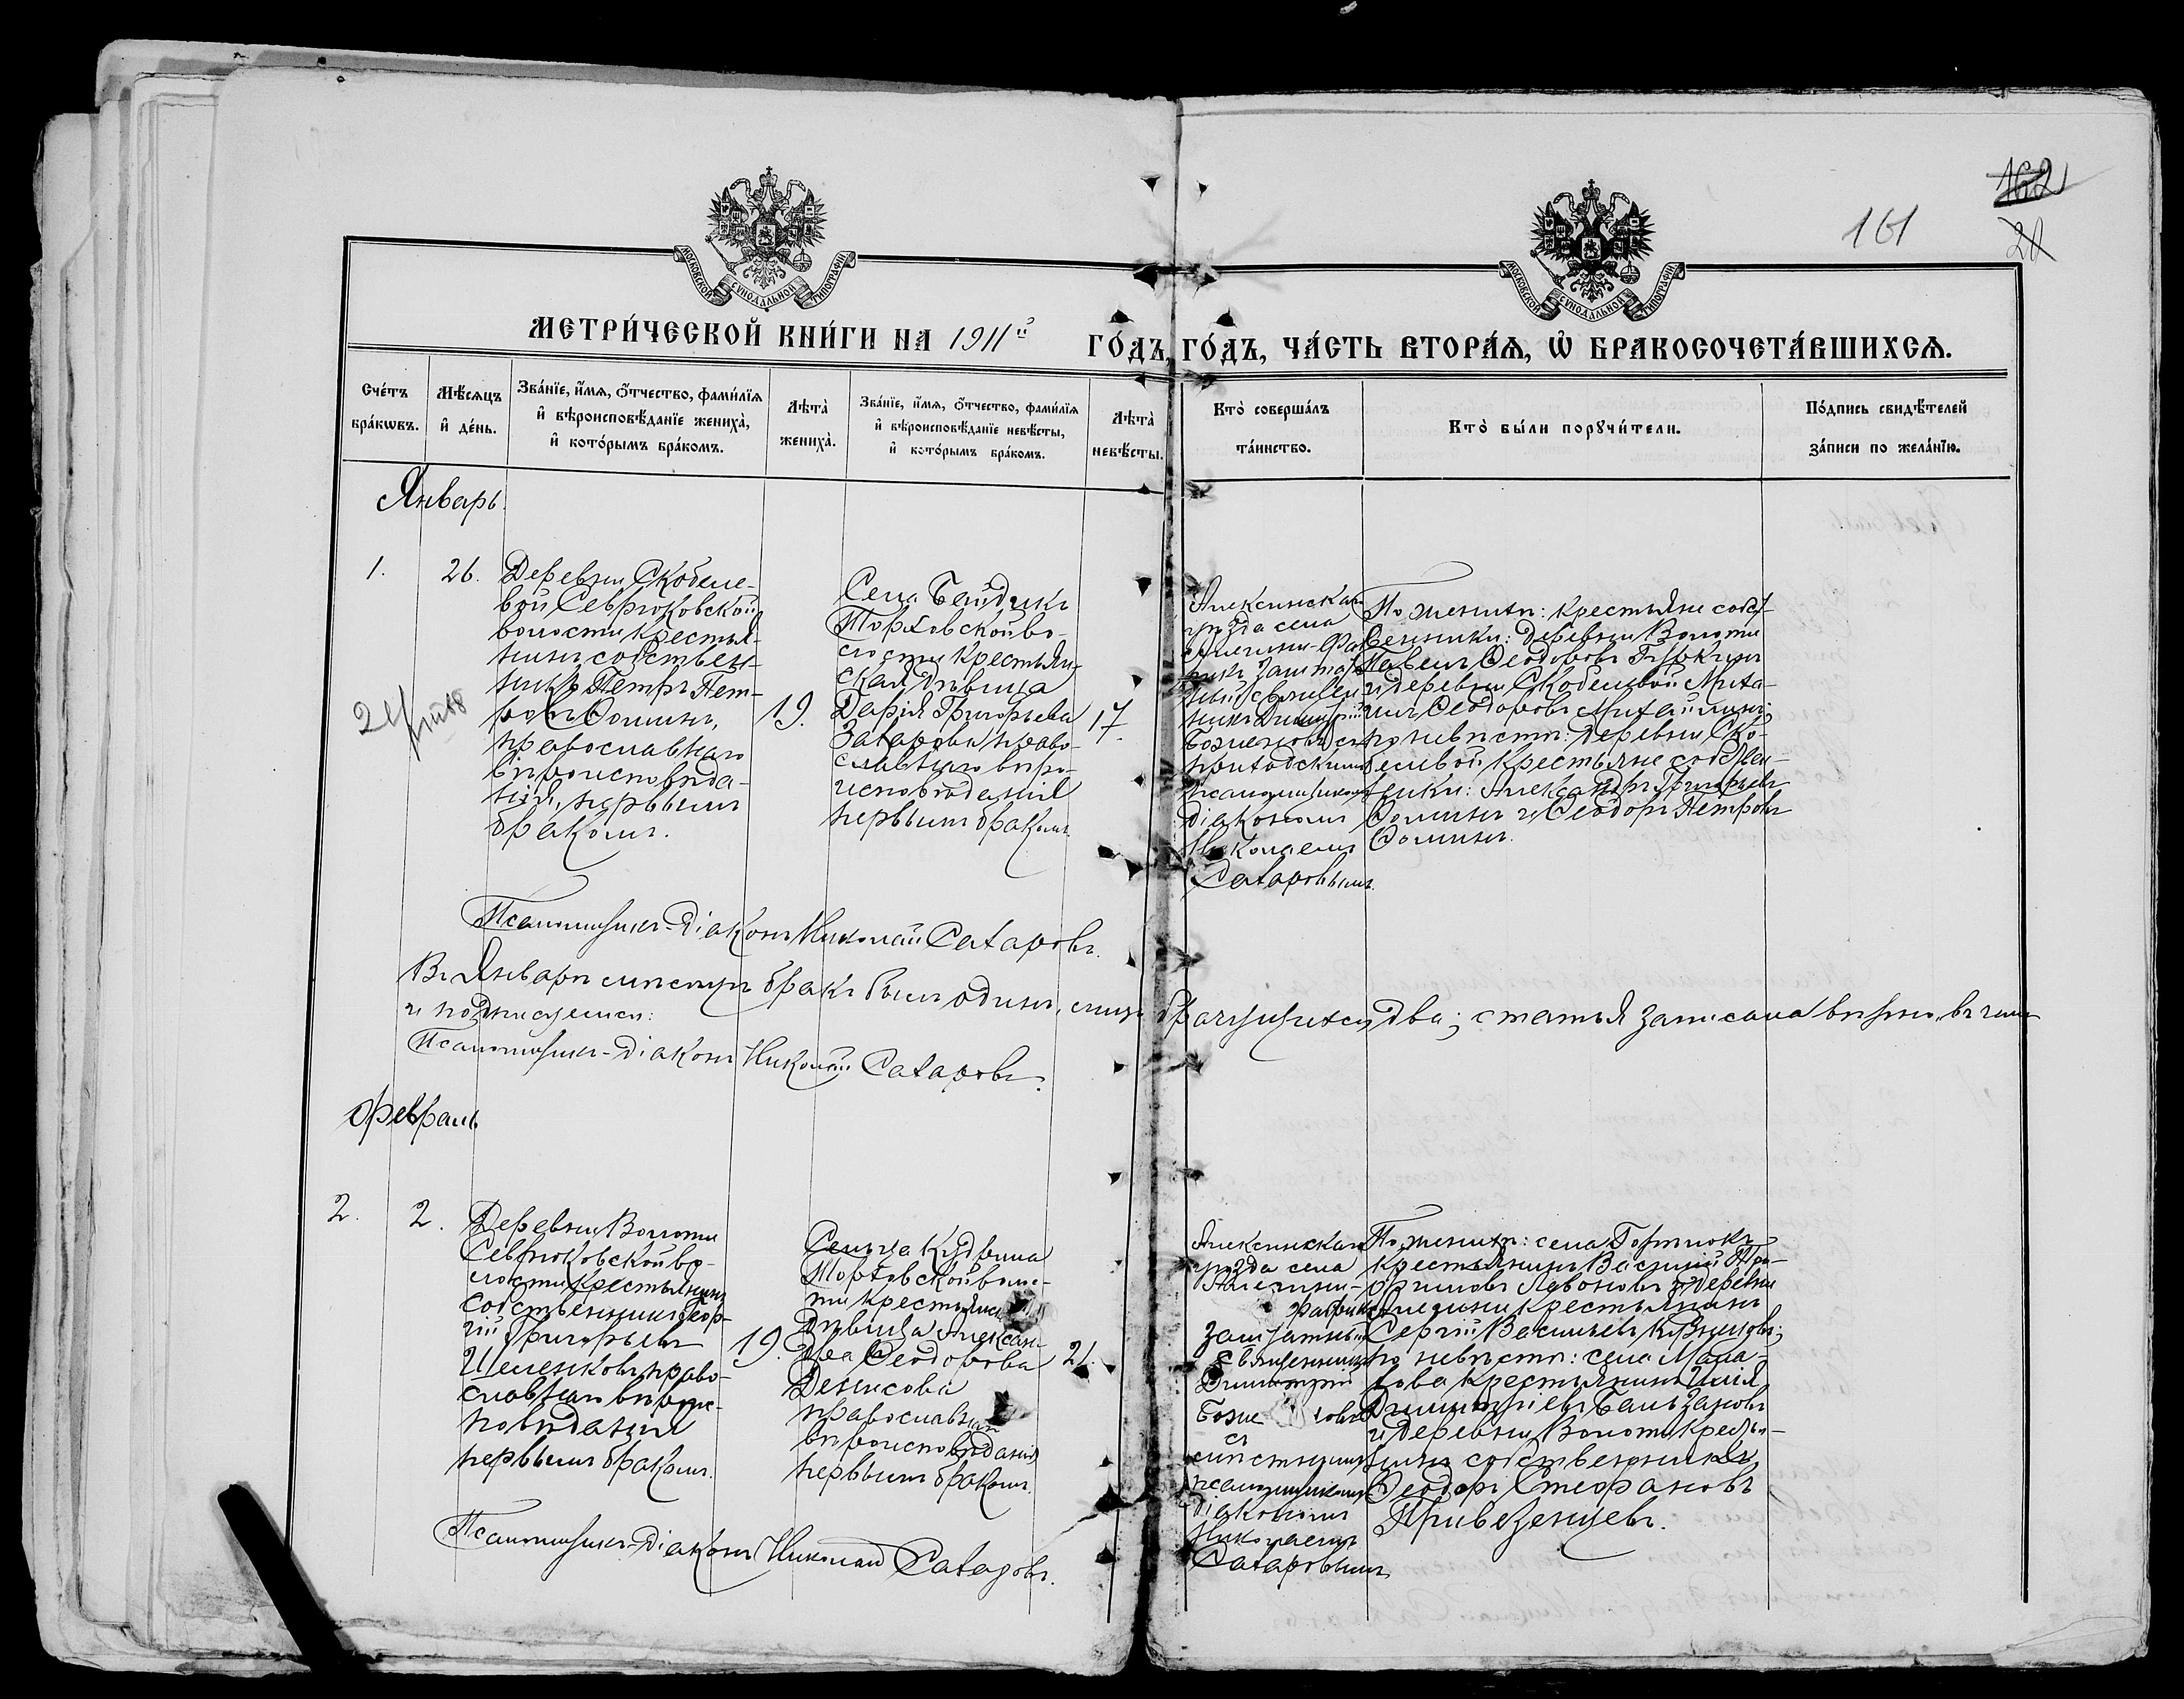 162
161
20
МОСКОВСКОЙ СѴНОДАЛЬНОЙ ТИПОГРАФІИ
МОСКОВСКОЙ СѴНОДАЛЬНОЙ ТИПОГРАФІИ
МЕТРИ́ЧЕСКОЙ КНИ́ГИ НА 1911й ГО́ДЪ,
ГО́ДЪ, ЧА́СТЬ ВТОРА́Я, Ѡ҆ БРАКОСОЧЕТА́ВШИХСЯ.
Сче́тъ
бра́кѡвъ.
Мѣ́сяцъ
и҆ де́нь.
Зва́нїе, и҆́мя, ѻ҆́тчество, фами́лїя
и҆ вѣроисповѣ́данїе жениха̀,
и҆ кото́рымъ бра́комъ.
Лѣта̀
жениха̀.
Зва́нїе, и҆́мя, ѻ҆́тчество, фами́лїя
и҆ вѣроисповѣ́данїе невѣ́сты,
и҆ кото́рымъ бра́комъ.
Лѣта̀
невѣ́сты.
Кто̀ соверша́лъ
та́инство.
Кто̀ бы́ли порꙋчи́тели.
По́дпись свидѣ́телей
за́писи по жела́нїю.
Январь.
1.
26.
Деревни Скобеле-
вой Севрюковской
волости крестья-
нинъ собствен-
никъ Петръ Пет-
ровъ Ѳоминъ,
православнаго
вѣроисповѣда-
нія, первымъ
бракомъ.
19.
Села Байдикъ
Торховской во-
лости крестьян-
ская дѣвица
Дарія Григорьева
Захарова право-
славнаго вѣро-
исповѣданія
первымъ бракомъ
17.
Алексинскаго
уѣзда села
заштат
ный священ
никъ Димитрій
Боженовъ съ
приходскимъ
псаломщикомъ
діакономъ
Николаемъ
Сахаровымъ.
По женихѣ: крестьяне собст-
венники: деревни Волоти
Павелъ Ѳеодоровъ
и деревни Скобелевой Миха-
илъ Ѳеодоровъ Михайлинъ;
по невѣстѣ: деревни Ско-
белевой крестьяне собствен-
ники: Александръ Григорьевъ
Ѳоминъ и Ѳеодоръ Петровъ
Ѳоминъ.
Псаломщикъ-діаконъ Николай Сахаровъ.
Въ Январѣ мѣсяцѣ бракъ былъ одинъ, лицъ брачущихся два; статья записана вѣрно, въ чемъ
и подписуемся:
Псаломщикъ-діаконъ Николай Сахаровъ.
Февраль
2.
2.
Деревни Волоти
Севрюковской во-
лости крестьянинъ
собственникъ Геор-
гій Григорьевъ
право-
славнаго вѣроис-
повѣданія
первымъ бракомъ.
19.
Сельца Кудрина
Торховской волос-
ти крестьянская
дѣвица Алексан-
дра Ѳеодорова
Денисова
православнаго
вѣроисповѣданія
первымъ бракомъ.
21.
Алексинскаго
уѣзда села
заштатный
Священникъ
Димитрій
съ
мѣстнымъ
псаломщикомъ
діакономъ
Николаемъ
Сахаровымъ
По женихѣ: села
крестьянинъ Василій Тро-
фимовъ и деревни
крестьянинъ
Сергій Васильевъ
по невѣстѣ: села Мала-
хова крестьянинъ Илія
Димитріевъ
и деревни Волоти крестья-
нинъ собственникъ
Ѳеодоръ Стефановъ
Привезенцевъ.
Псаломщикъ-діаконъ Николай Сахаровъ.